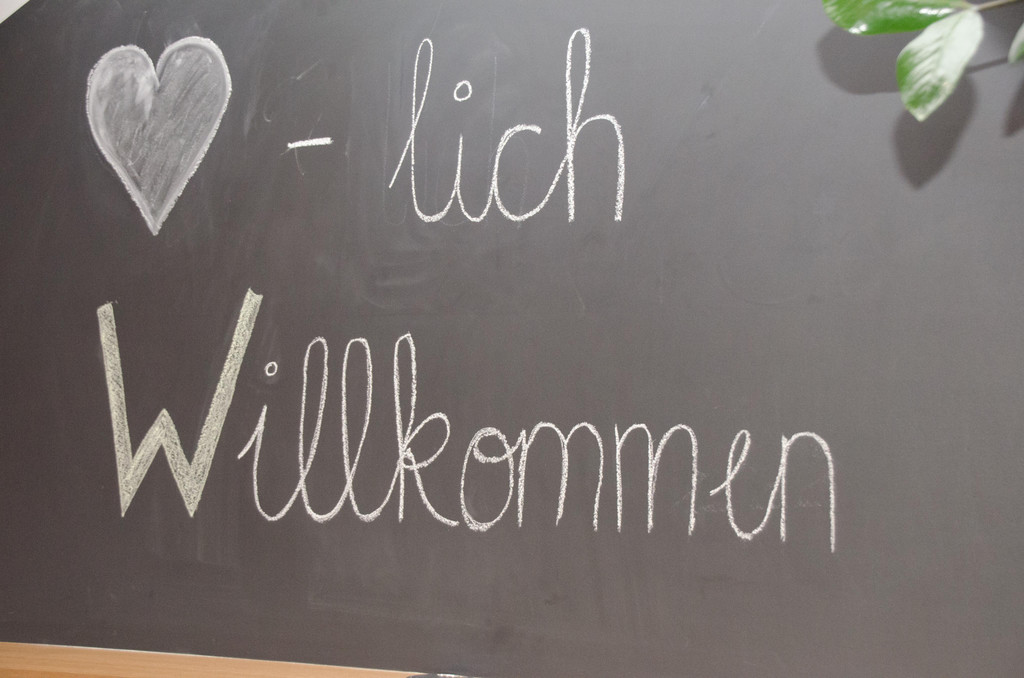 ♥ - lich
Willkommen